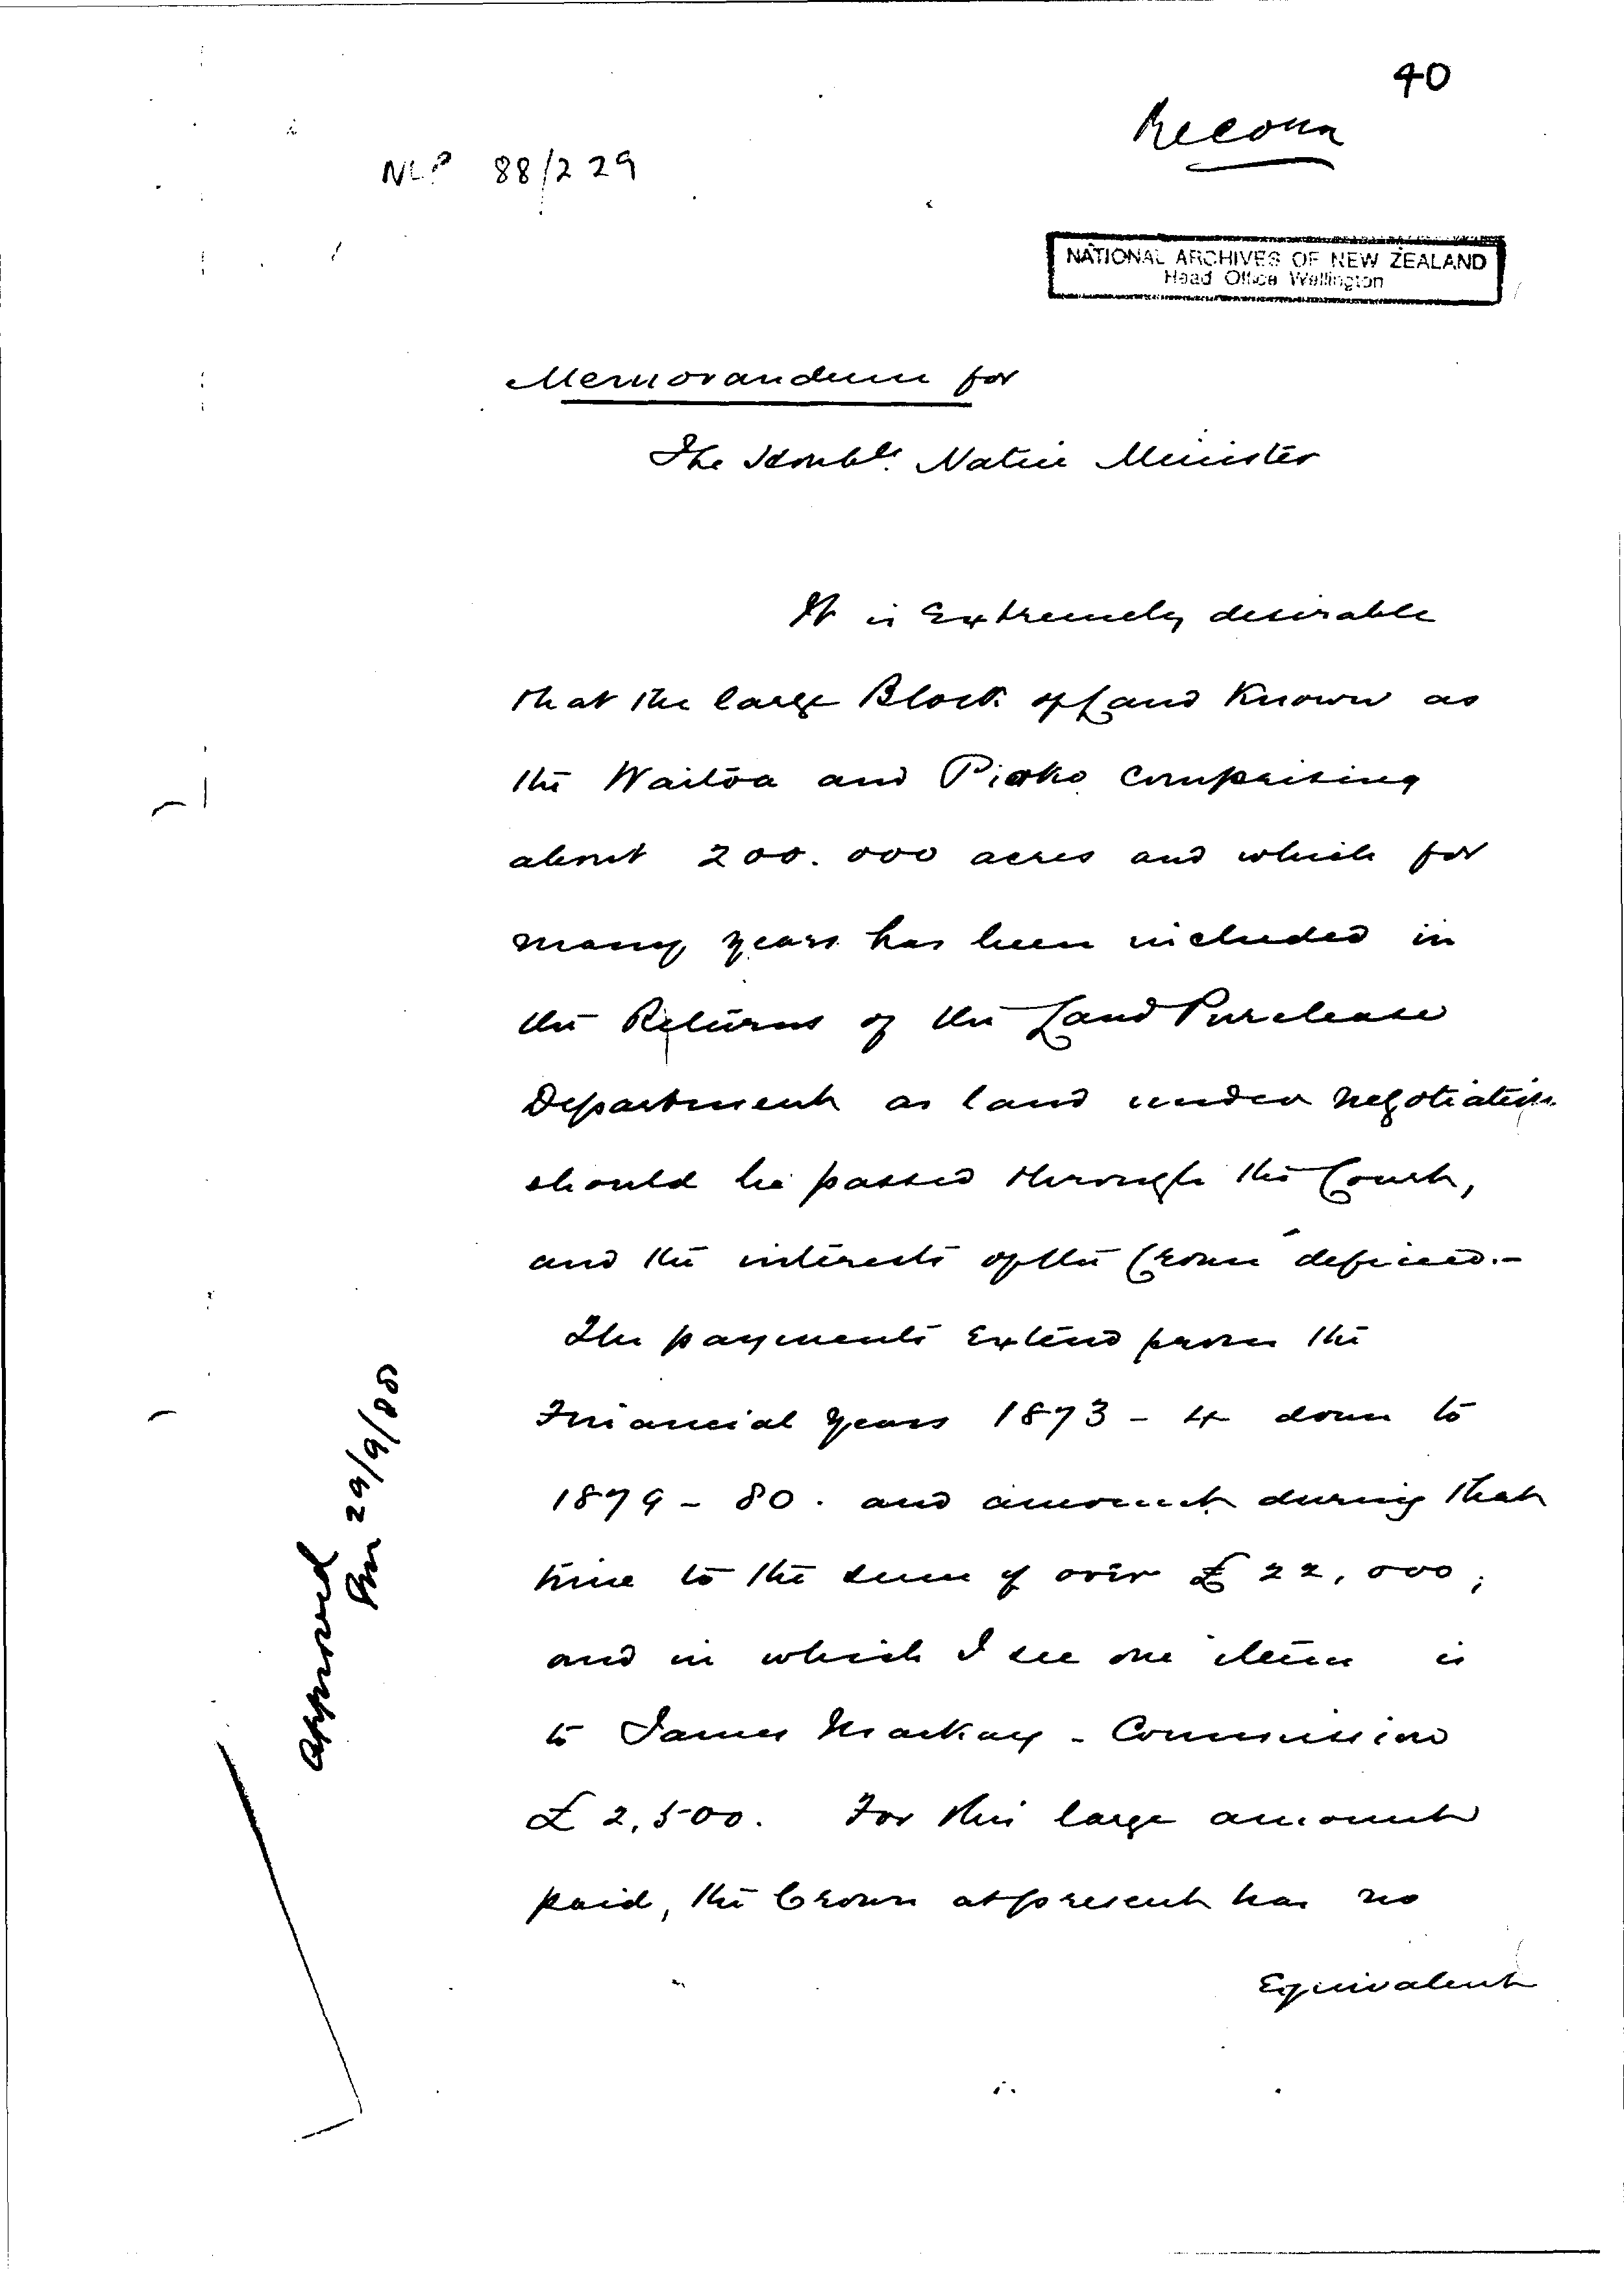 40
Record
NLP 88/229
NATIONAL ARCHIVES OF NEW ZEALAND
Head Office Wellington
Memorandum for
The Honble. Native Minister
It is Extremely desirable
that the large Block of Land Known as
the Waitoa and Piako Comprising
about 200.000 acres and which for
many years has been included in
the Returns of the Land Purchase
Department as land under negotiation
should be passed through the Court,
and the interests of the Crown defined.-
The payments Extend from the
Financial Years 1873 - 4 down to
1879 - 80. and amount during that
time to the sum of over £22,000;
and in which I see one item is
to James Mackay - Commission
£2,500. For this large amount
paid, the Crown at present has no
Equivalent
Approved
29/9/88